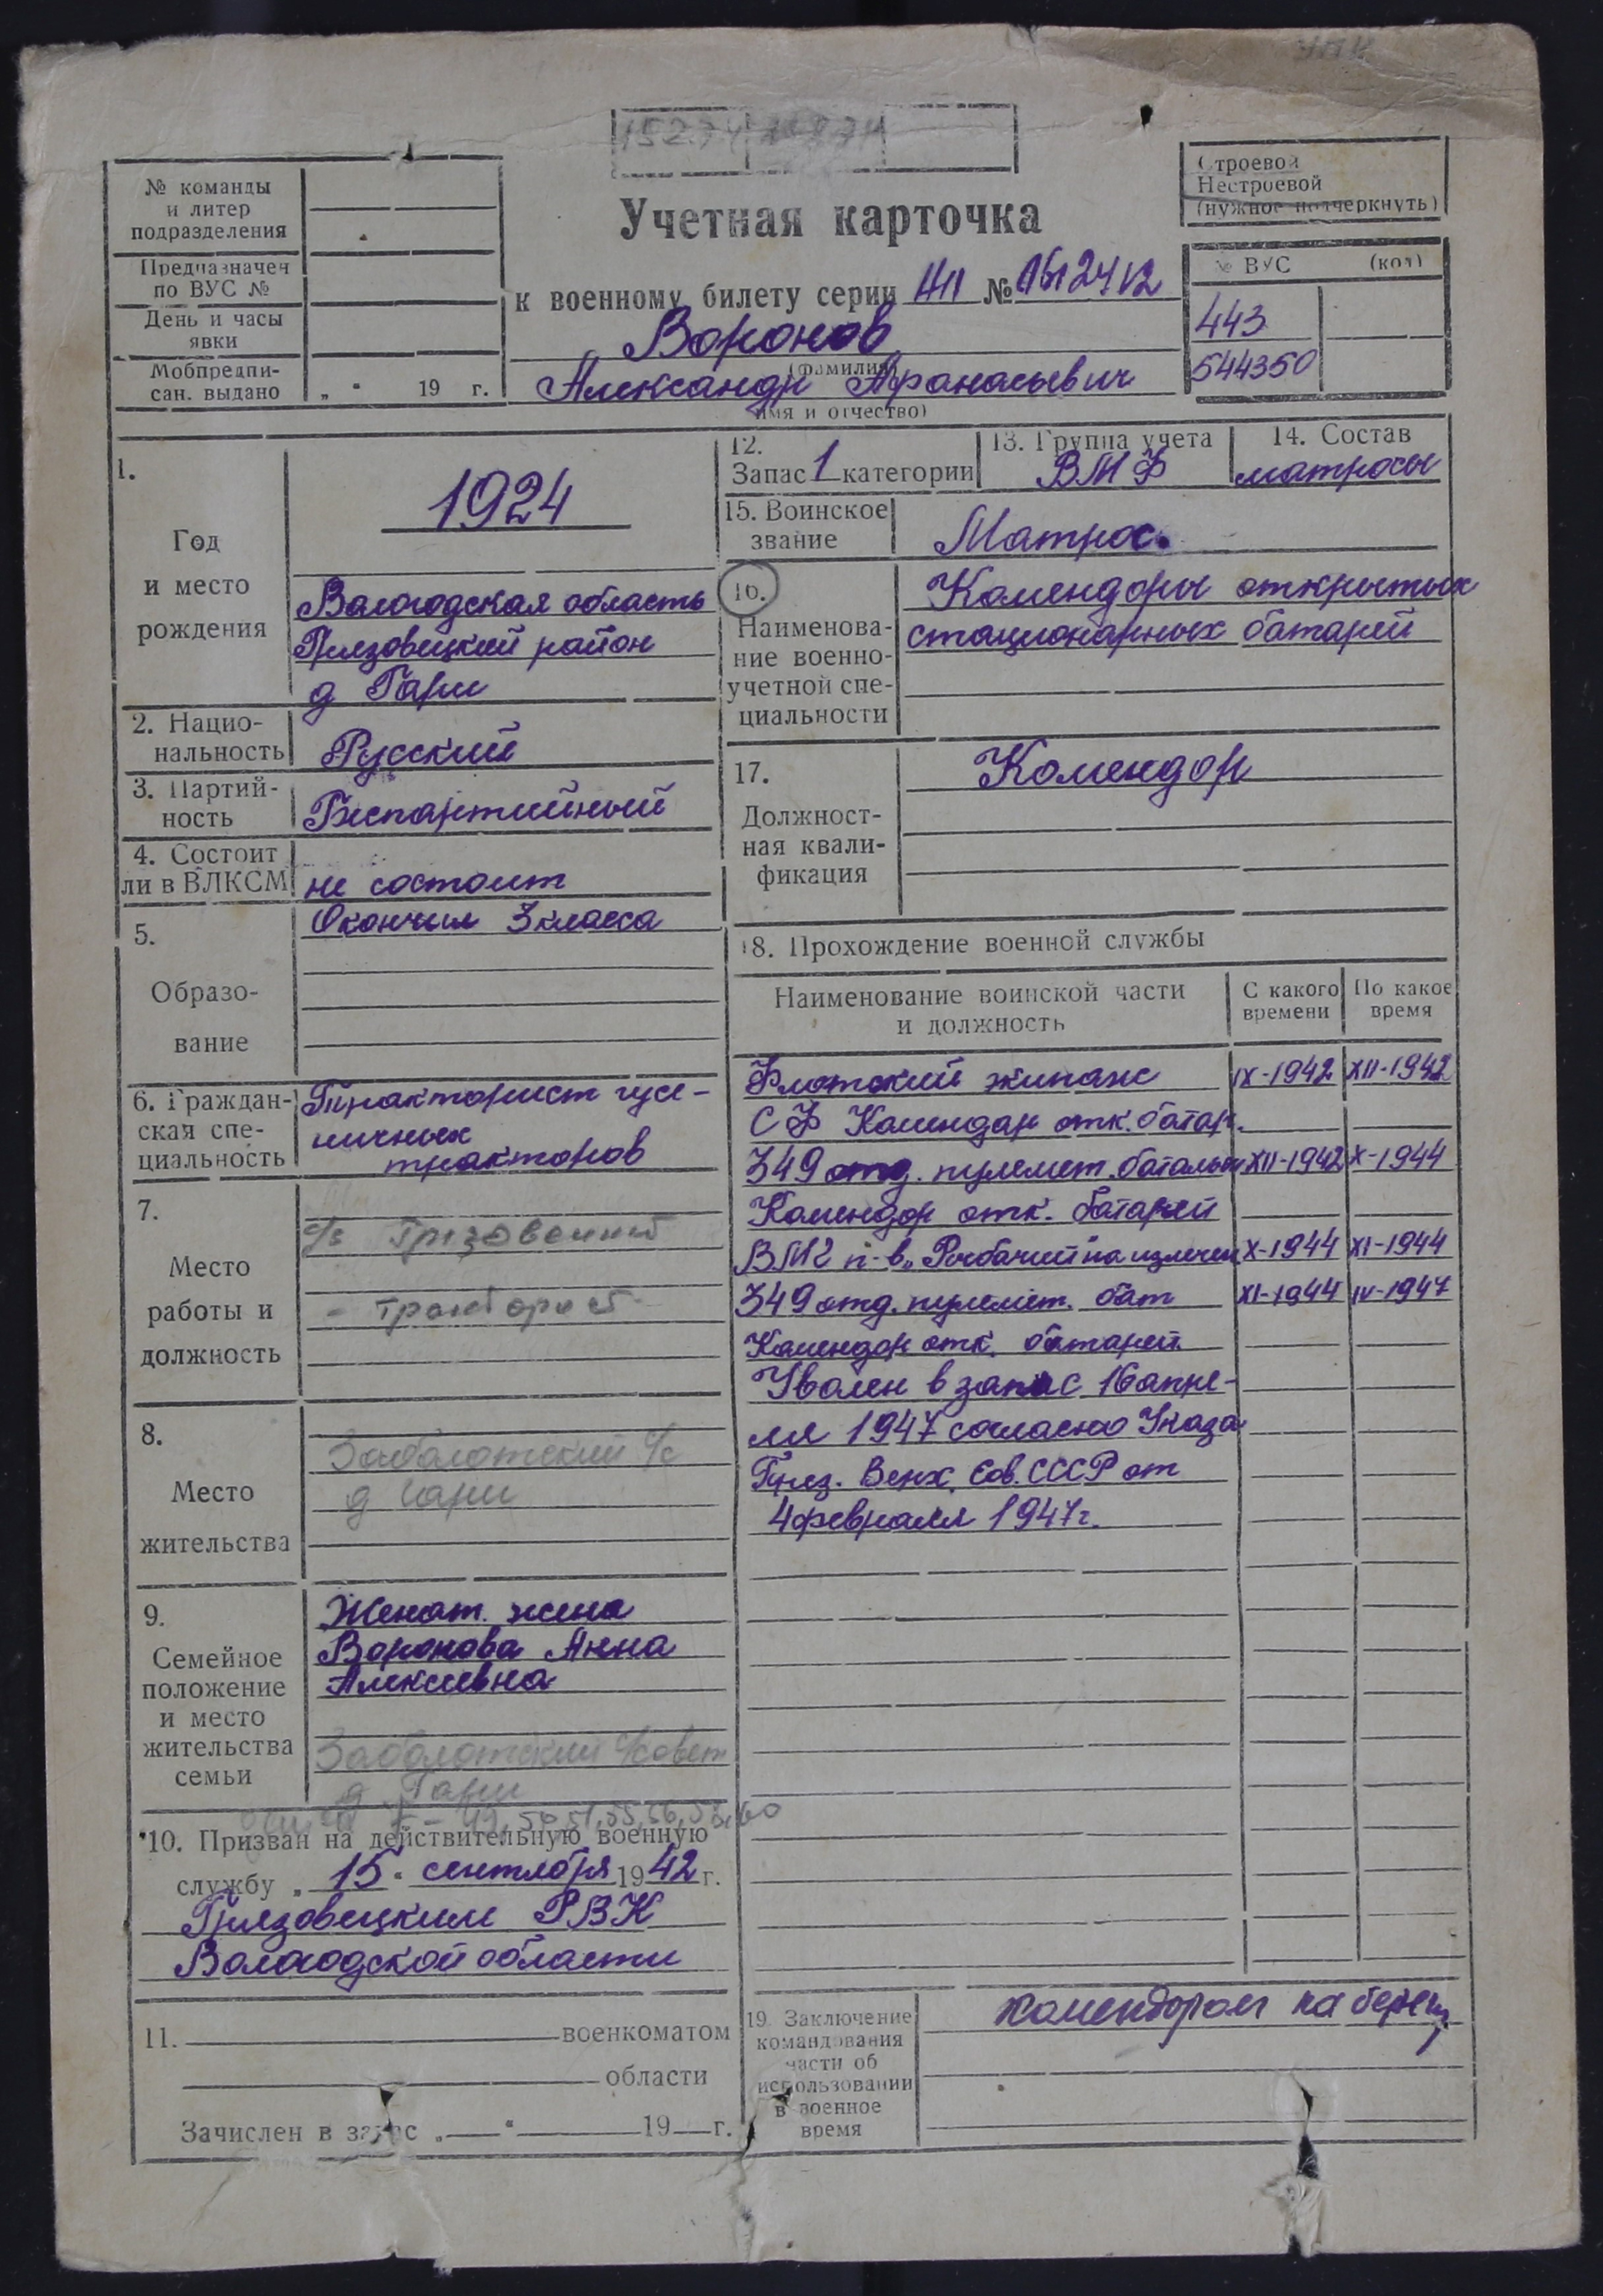 Строевой
Нестроевой
(нужное подчеркнуть)
№ команды
и литер
подразделения
Предназначен
по ВУС №
День и часы
явки
Мобпредпи-
сан. выдано
„ " 19 г.
Учетная карточка
к военному билету серии №
Воронов
(фамилия)
Александр Афанасьевич
имя и отчество)
№ ВУС (код)
443
544350
1.
Год
и место
рождения
1924
Вологодская область
Грязовецкий район
д Гари
2. Нацио-
нальность
Русский
3. Партий-
ность
Беспартийный
4. Состоит
ли в ВЛКСМ
не состоит
5.
Образо-
вание
Окончил 3 класса
6. Граждан-
ская спе-
циальность
Тракторист гусе-
ничных
тракторов
7.
Место
работы и
должность
- тракторист
8.
Место
жительства
Заболотский с/с
д Гари
9.
Семейное
положение
и место
жительства
семьи
Женат. жена
Воронова Анна
Алексеевна
Заболотский с/совет
д. Гари
10. Призван на действительную военную
службу „ 15 " сентября 1942 г.
Грязовецким РВК
Вологодской области
11. военкоматом
области
Зачислен в запас „ " 19 г.
12.
Запас 1 категории
13. Группа учета
ВМФ
14. Состав
матросы
15. Воинское
звание
Матрос.
16.
Наименова-
ние военно-
учетной спе-
циальности
Комендоры открытых
стационарных батарей
17.
Должност-
ная квали-
фикация
Комендор
18. Прохождение военной службы
Наименование воинской части
и должность
С какого
времени
По какое
время
Флотский экипаж IX-1942 XII-1942
СФ Комендор отк. батар.
349 отд. пулемет. батальон XII-1942 X-1944
Комендор отк. батарей
ВМГ п-в „Рыбачий" на излечен X-1944 XI-1944
349 отд. пулемет. бат XI-1944 IV-1947
Комендор отк. батарей
Уволен в запас 16 апре-
ля 1947 согласно Указа
През. Верх. Сов. СССР от
4 февраля 1947 г.
19. Заключение
командования
части об
использовании
в военное
время
комендором на берегу